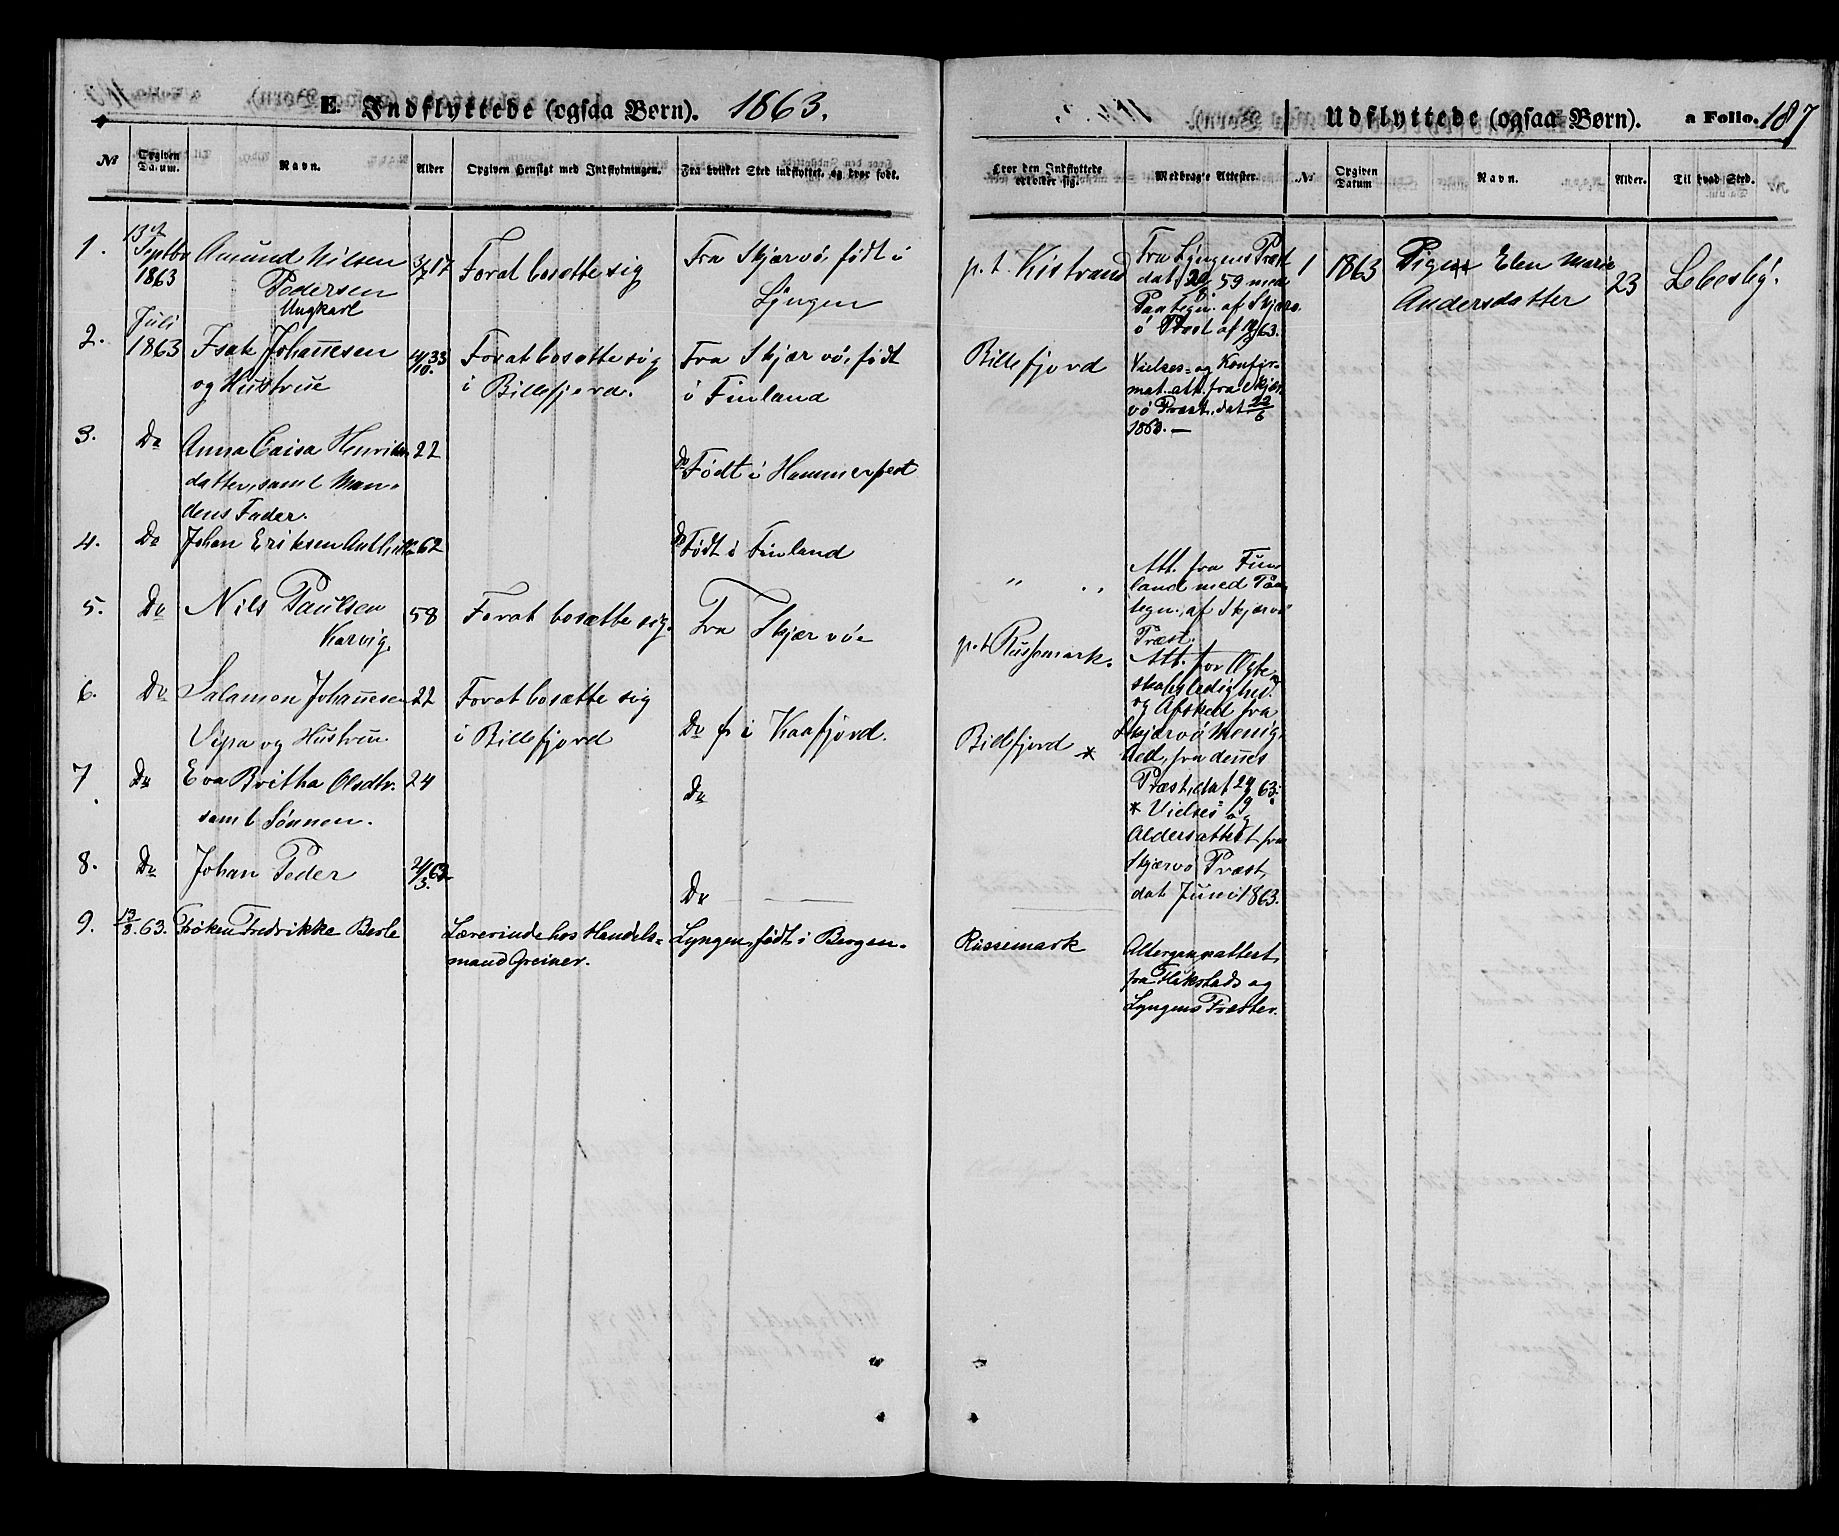 E. Indflyttede (ogsaa Børn). 1863.
Udflyttede (ogsaa Børn). a Folio. 187
№ Opgiven Datum. Navn. Alder Opgiven Hensigt med Indflytningen. Fra hvilket Sted indflyttet, og hvor født.
Hvor den Indflyttede opholder sig. Medbragte Attester. № Opgiven Datum Navn. Alder. Til hvad Sted.
1. 13de Septbr 1863 Amund Nilsen Pedersen Ungkarl 17 For at bosætte sig Fra Skjærvö, födt i Lÿngen
p.t. Kistrand Fra Lyngens Præst dat 59 med Paategn. af Skjærvö Præst af 63.
2. Juli 1863 Isak Johannesen og Hustrue 33 For at bosætte sig i Billefjord. Fra Skjærvö, födt i Finland
Billefjord Vielses- og Konfirmat. att. fra Skjærvö Præst, dat 1863. —
3. Do Anna Caisa Henriksdatter, samt Mandens Fader. 22 Do Födt i Hammerfest
4. Do Johan Eriksen 62 Do Födt i Finland
" " Att. fra Finland med Paategn. af Skjærvö Præst.
5. Do Nils Paulsen Karvig. 58 For at bosætte sig. Fra Skjærvöe
p.t. Russemark. Att. for Ægteskabsledighed og Afsked fra Skjærvö Menighed, fra dennes Præst, dat 63.
6. Do Salamon Johannesen Vipa og Hustrue 22 For at bosætte sig i Billefjord Do f. i Kaafjord.
Billefjord * * Vielses og Aldersattest fra Skjærvö Præst, dat Juni 1863.
7. Do Eva Britha Olsdtr. samt Sönnen. 24 Do
8. Do Johan Peder 2/3 63 Do
9. 13/8. 63. Frøken Fredrikke Berle Lærerinde hos Handelsmand Greiner. Lyngen, født i Bergen.
Russemark Altergangsattest fra Hakstads og Lyngens Præster.
1 1863 Pigen Elen Marie Andersdatter 23 Lebesby.